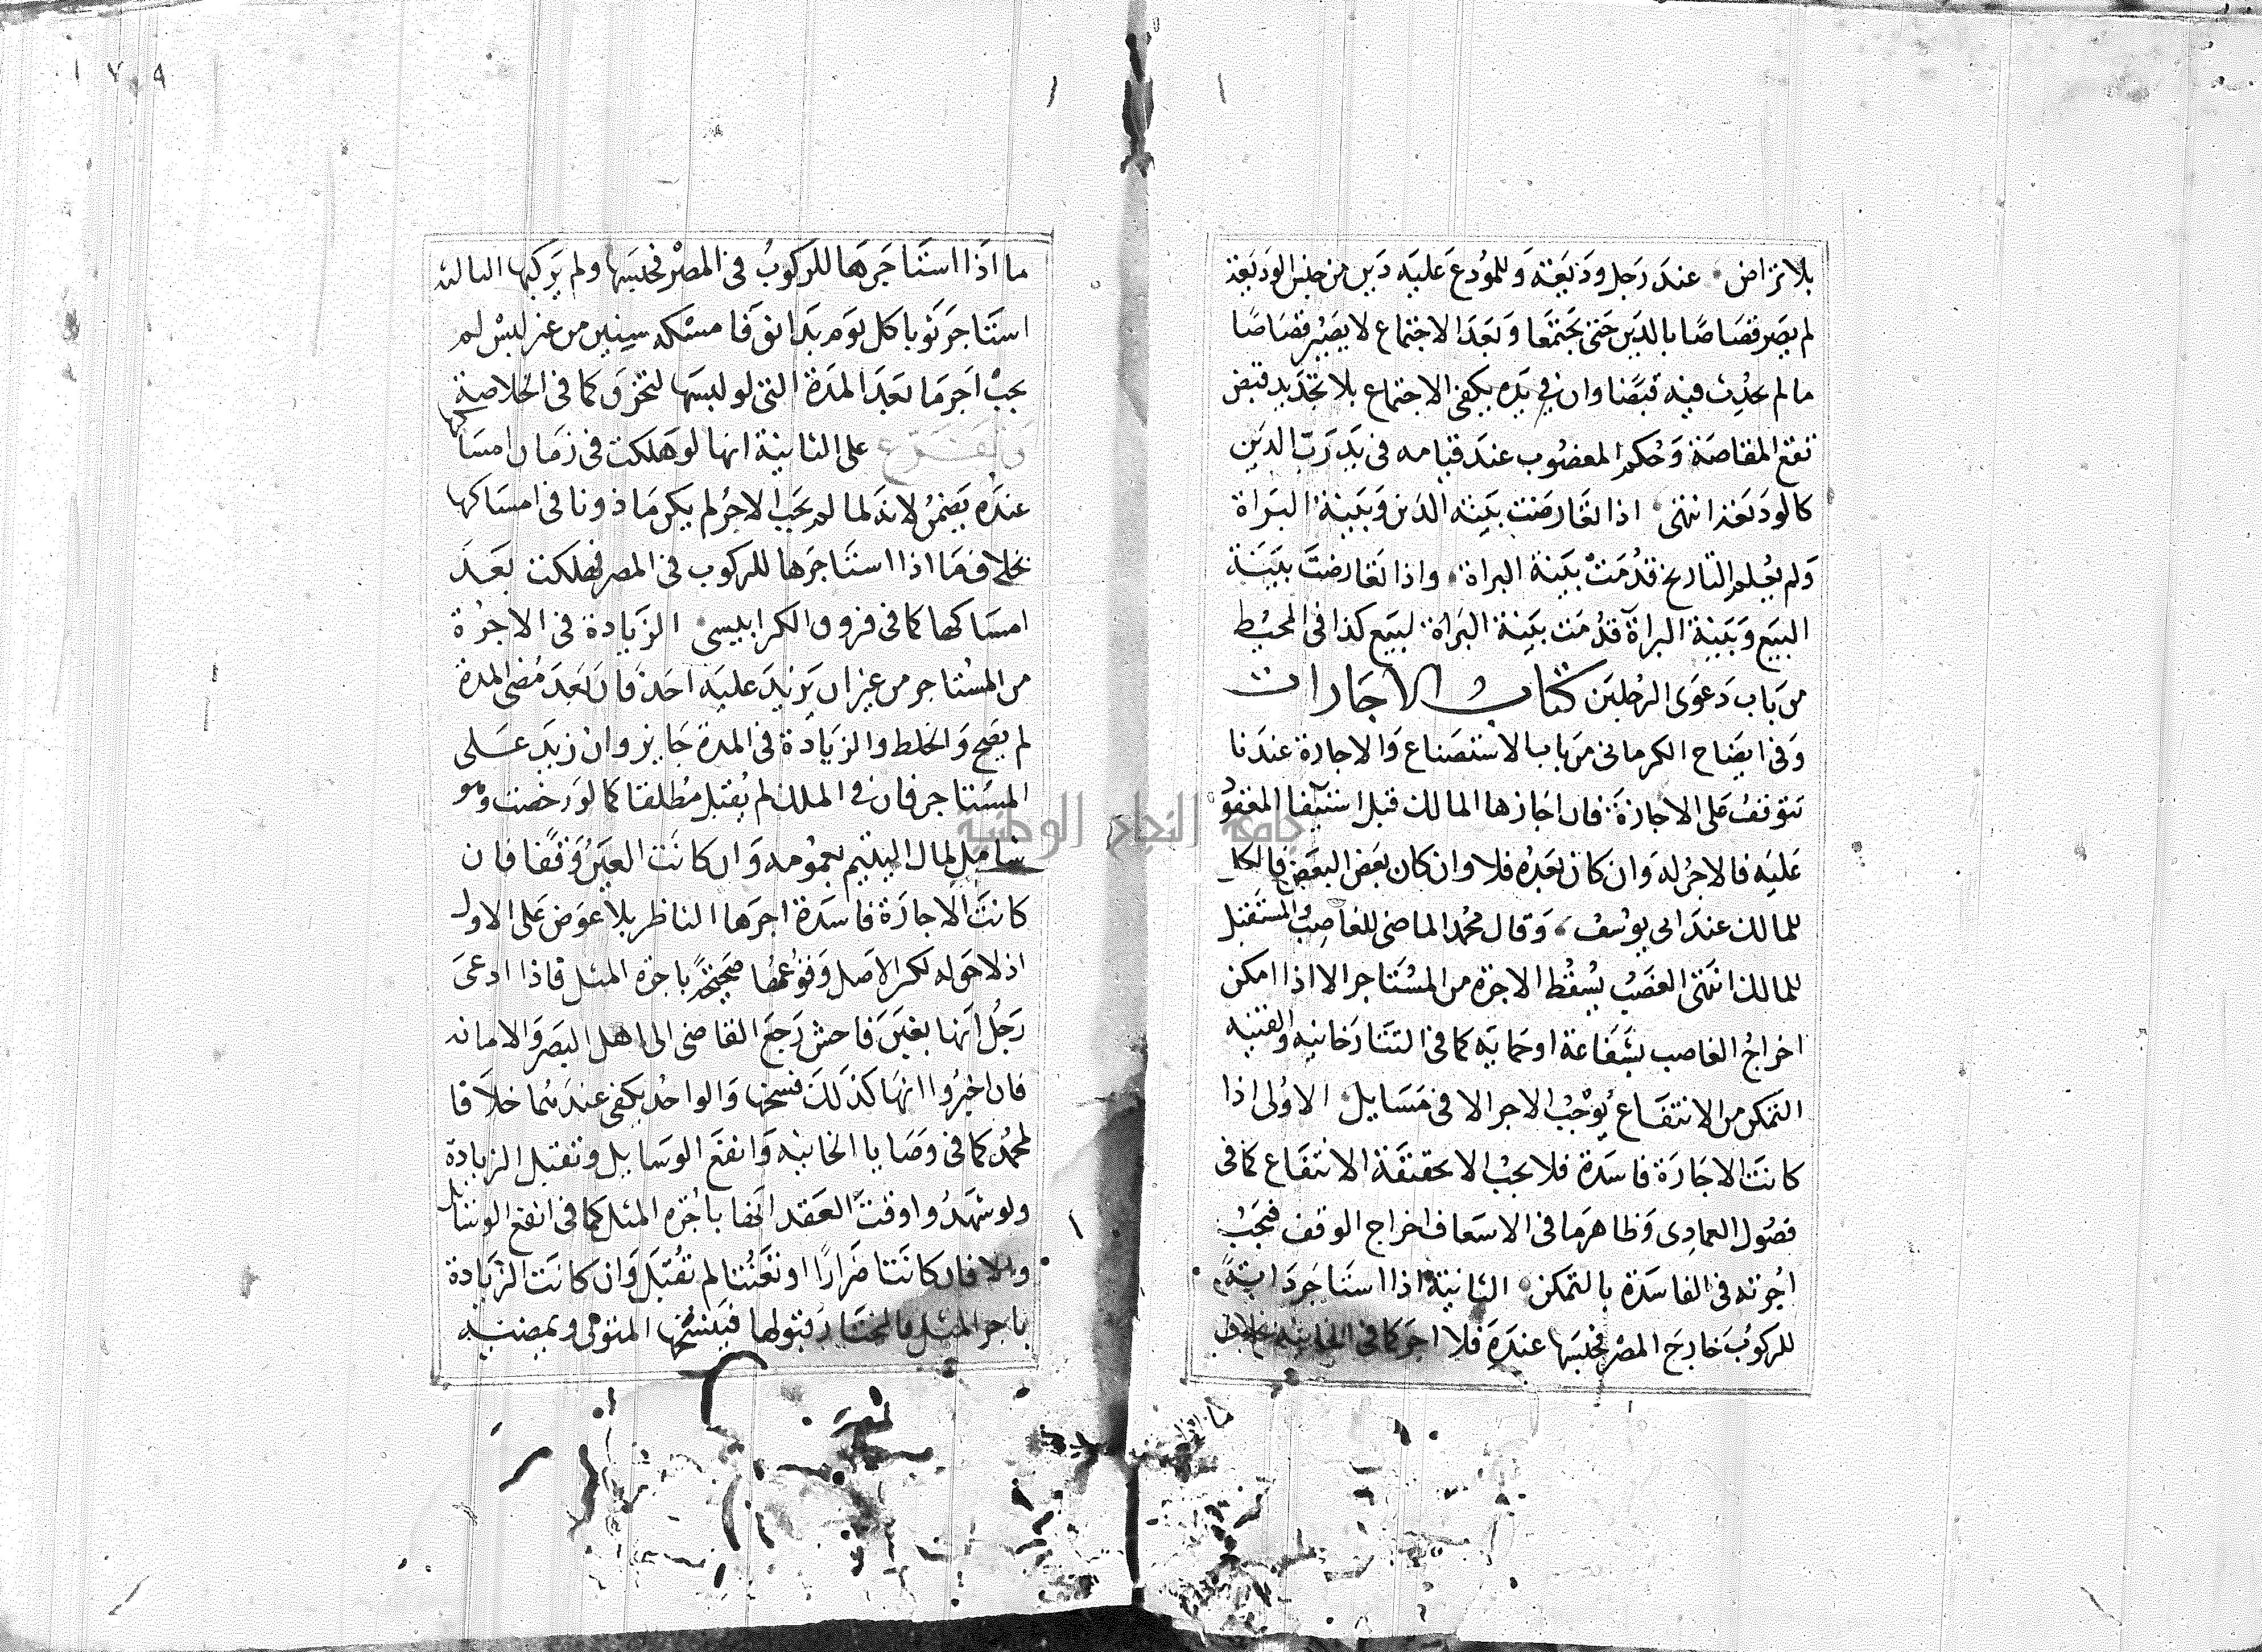 بلا تراض عند رجل وديعة وللمودع عليه دين من جنس الوديعة
لم يصر قصاصا بالدين حتى يجتمعا وبعد الاجتماع لا يصير قصاصا
ما لم يحدث فيه قبضا وان في يده يكفي الاجتماع بلا تجديد قبض
تقع المقاصة وحكم المغصوب عند قيامه في يد رب الدين
كالوديعة انتهى اذا تعارضت بينة الدين وبينة البراة
ولم يعلم التاريخ قدمت بينة البراة واذا تعارضت بينة
البيع وبينة البراة قدمت بينة البراة لبيع كذا في المحيط
من باب دعوى الرجلين كتاب الاجارات
وفي ايضاح الكرماني من باب الاستصناع والاجارة عندنا
تتوقف على الاجازة فان اجازها المالك قبل استيفا المعقود
عليه فالاجر له وان كان بعده فلا وان كان بعض البعض فالكل
للمالك عند ابي يوسف وقال محمد الماضي للغاصب والمستقبل
للمالك انتهى الغصب يسقط الاجرة من المستاجر الا اذا امكن
اخراج الغاصب بشفاعة او حماية كما في التتارخانية والقنية
التمكن من الانتفاع يوجب الاجر الا في مسايل الاولى اذا
كانت الاجارة فاسدة فلا يجب الا بحقيقة الانتفاع كما في
فصول العمادي وظاهر ما في الاسعاف اخراج الوقف فيجب
اجرته في الفاسدة بالتمكن الثانية اذا استاجر دابة
للركوب خارج المصر فحبسها عنده فلا اجر كما في الخانية بخلاف
ما اذا
ما اذا استاجرها للركوب في المصر فحبسها ولم يركبها الثالثة
استاجر ثوبا كل يوم بدانق فامسكه سنين من غير لبس لم
يجب اجر ما بعد المدة التي لو لبسها لتخرق كما في الخلاصة
وتفرع على الثانية انها لو هلكت في زمان امساكها
عنده يضمن لانه لما لم يجب الاجر لم يكن ماذونا في امساكها
بخلاف ما اذا استاجرها للركوب في المصر فهلكت بعد
امساكها كما في فروق الكرابيسي الزيادة في الاجرة
من المستاجر من غير ان يزيد عليه احد فان بعد مضي المدة
لم يصح والحط والزيادة في المدة جايز وان زيد على
المستاجر فان في الملك لم يقبل مطلقا كما لو رخصت وهو
شامل لمال اليتيم بعمومه وان كانت العين وقفا فان
كانت الاجارة فاسدة اجرها الناظر بلا عوض على الاول
اذ لا حق له لكن الاصل وقوعها صحيحة باجرة المثل فاذا ادعى
رجل انها بغبن فاحش رجع القاضي الى اهل البصر والامانة
فان اخبروا انها كذلك فسخها والواحد يكفي عندهما خلافا
لمحمد كما في وصايا الخانية وانفع الوسايل وتقبل الزيادة
ولو شهدوا وقت العقد انها باجرة المثل كما في انفع الوسايل
والا فان كانت اضرارا او تعنتا لم تقبل وان كانت الزيادة
باجر المثل فالمختار قبولها فيفسخها المتولي ويمضيه